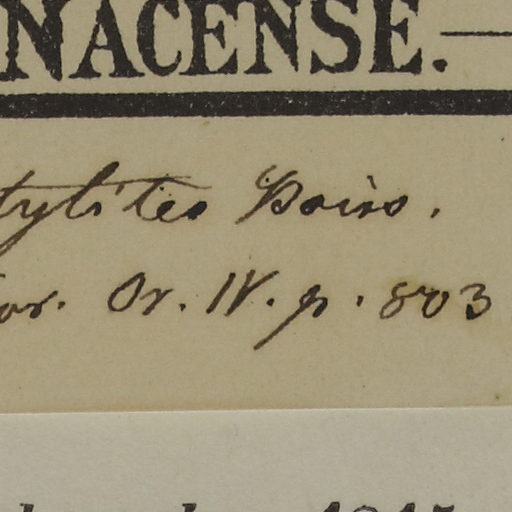 NACENSE.—
tylites Poir.
or. Or. IV. p. 803